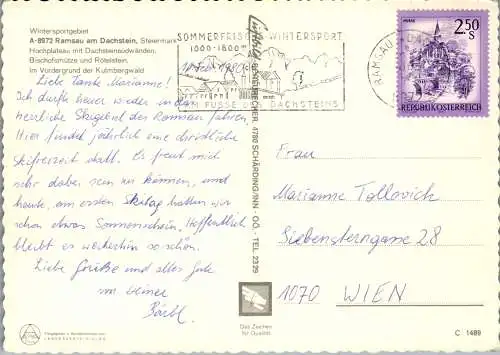 Wintersportgebiet
A-8972 Ramsau am Dachstein, Steiermark
Hochplateau mit Dachsteinsüdwänden,
Bischofsmütze und Rötelstein,
im Vordergrund der Kulmbergwald
Liebe Tante Marianne!
Ich durfte heuer wieder in das
herrliche Skigebiet des Ramsau fahren.
Hier findet jährlich eine christliche
Skifreizeit statt. Es freut mich
sehr dabei sein zu können, und
heute, am ersten Skitag hatten wir
schon etwas Sonnenschein. Hoffentlich
bleibt es weiterhin so schön.
Liebe Grüße und alles Gute
von Deiner
Bärbl
SOMMERFRISCHE WINTERSPORT
1000-1800m
AM FUSSE DES DACHSTEINS
RAMSAU
MURAU
2,50
S
REPUBLIK ÖSTERREICH
4780 SCHÄRDING/INN - O.Ö. - TEL. 2329
Frau
Marianne Tollovich
Siebensterngasse 28
1070 WIEN
Das Zeichen
für Qualität
C 1489